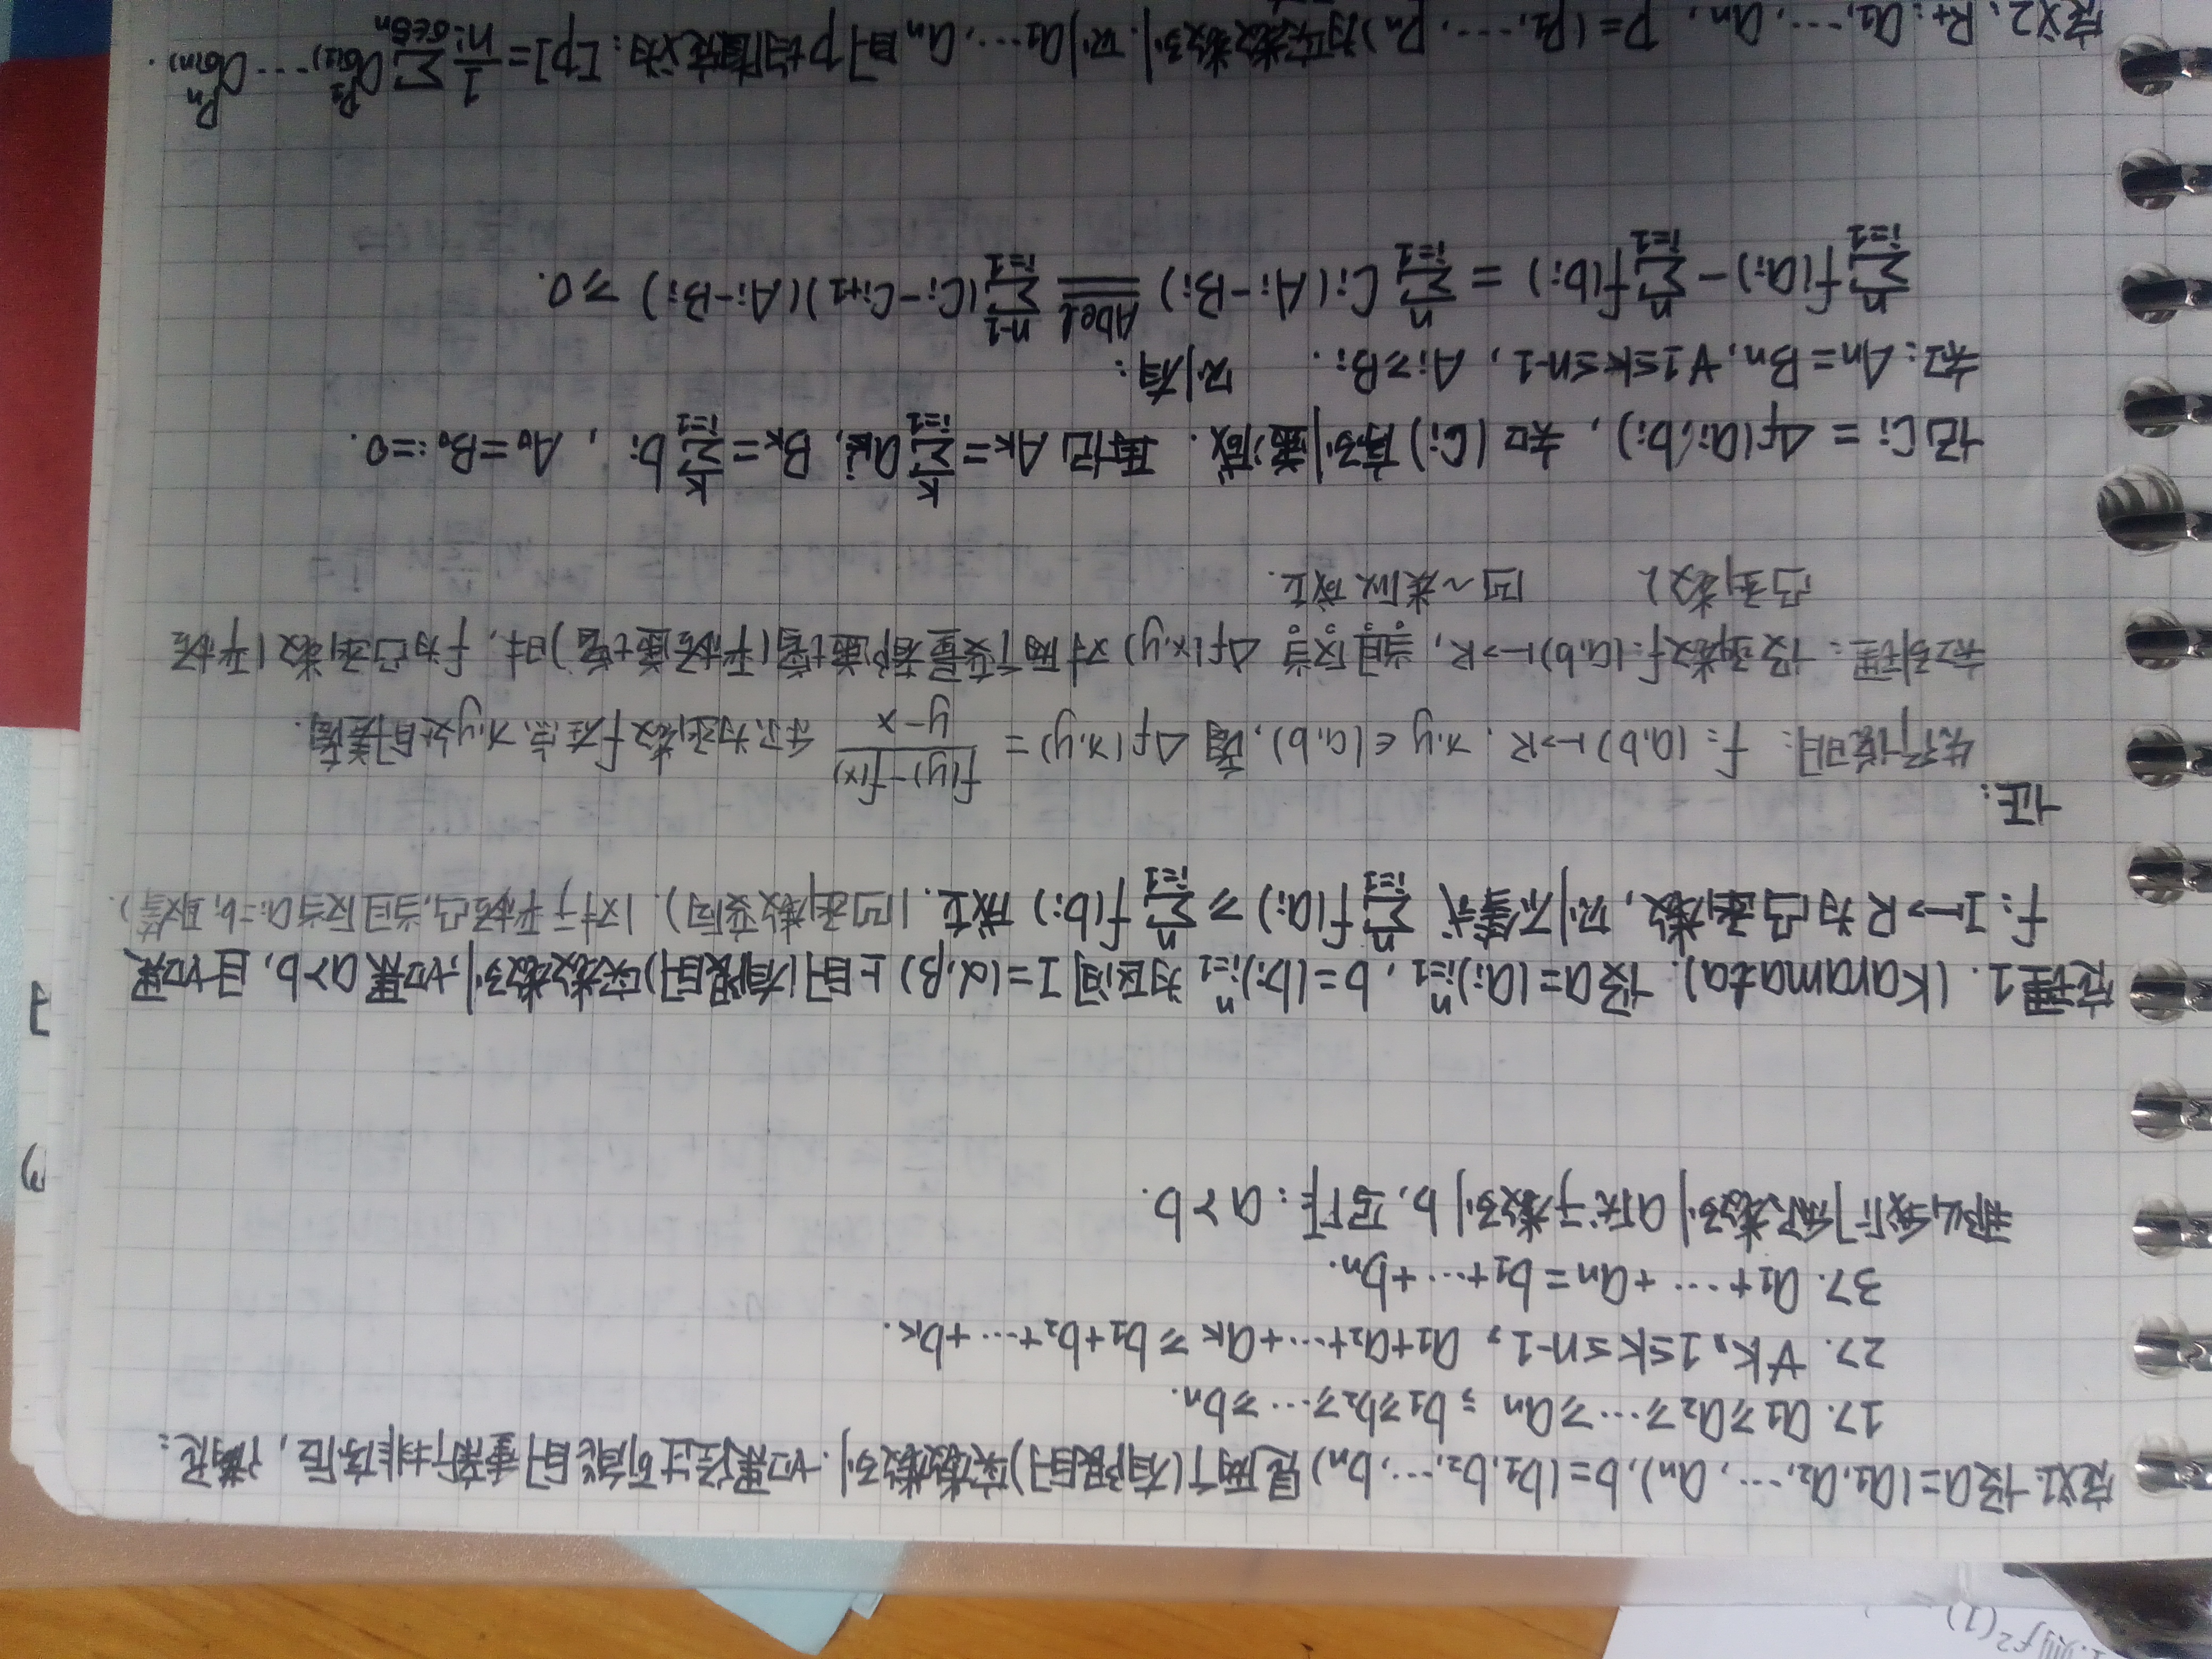 定义1. 设a=(a₁,a₂,…,aₙ), b=(b₁,b₂,…,bₙ)是两个(有限的)实数数列. 如果经过可能的重新排序后, 满足:
1>. a₁≥a₂≥…≥aₙ; b₁≥b₂≥…≥bₙ.
2>. ∀k, 1≤k≤n-1, a₁+a₂+…+aₖ ≥ b₁+b₂+…+bₖ.
3>. a₁+…+aₙ=b₁+…+bₙ.
那么我们称数列a优于数列b, 写作: a≻b.
定理1. (Karamata). 设a=(aᵢ)ⁿᵢ₌₁, b=(bᵢ)ⁿᵢ₌₁为区间I=(α,β)上的(有限的)实数数列, 如果a≻b, 且如果
f: I↦R为凸函数, 则不等式 ∑ⁿᵢ₌₁f(aᵢ) ≥ ∑ⁿᵢ₌₁f(bᵢ) 成立. (凹函数变向). (对于严格凸, 当且仅当aᵢ=bᵢ取等).
证:
先行说明: f: (a,b)↦R, x,y∈(a,b), 图 Δf(x,y) = (f(y)-f(x))/(y-x) 称为函数f在点x,y处的差商.
知引理: 设函数f:(a,b)↦R, 当且仅当 Δf(x,y) 对两个变量都递增(严格递增)时, f为凸函数(严格
凸函数) 凹~类似成立.
记Cᵢ = Δf(aᵢ,bᵢ), 知(Cᵢ)序列递减. 再记Aₖ=∑ᵏᵢ₌₁aᵢ, Bₖ=∑ᵏᵢ₌₁bᵢ, A₀=B₀:=0.
知: Aₙ=Bₙ, ∀1≤k≤n-1, Aᵢ≥Bᵢ. 则有:
∑ⁿᵢ₌₁f(aᵢ)-∑ⁿᵢ₌₁f(bᵢ) = ∑ⁿᵢ₌₁Cᵢ(Aᵢ-Bᵢ) Abel ∑ⁿ⁻¹ᵢ₌₁(Cᵢ-Cᵢ₊₁)(Aᵢ-Bᵢ) ≥0.
定义2. R₊: a₁,…,aₙ, p=(p₁,…,pₙ)为实数数列. 则a₁,…,aₙ的p均值定义为: [p]=1/n! ∑σ∈Sₙ a^p₁σ(1)…a^pₙσ(n).